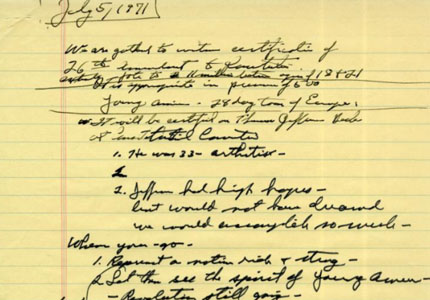 July 5, 1971
We are gathered to witness certification of
26th amendment to Constitution.
vote to 11 million between ages of 18 & 21
It is appropriate in presence of 500
Young Amer - 28 day tour of Europe,
It will be certified on Thomas Jefferson Desk
at Constitutional
1. He was 33 -
2
2. Jefferson had high hopes -
but would not have dreamed
we would accomplish so much -
When you - go -
1. Represent a nation rich & strong -
2. Let them see the spirit of young Amer -
- Revolution still going -